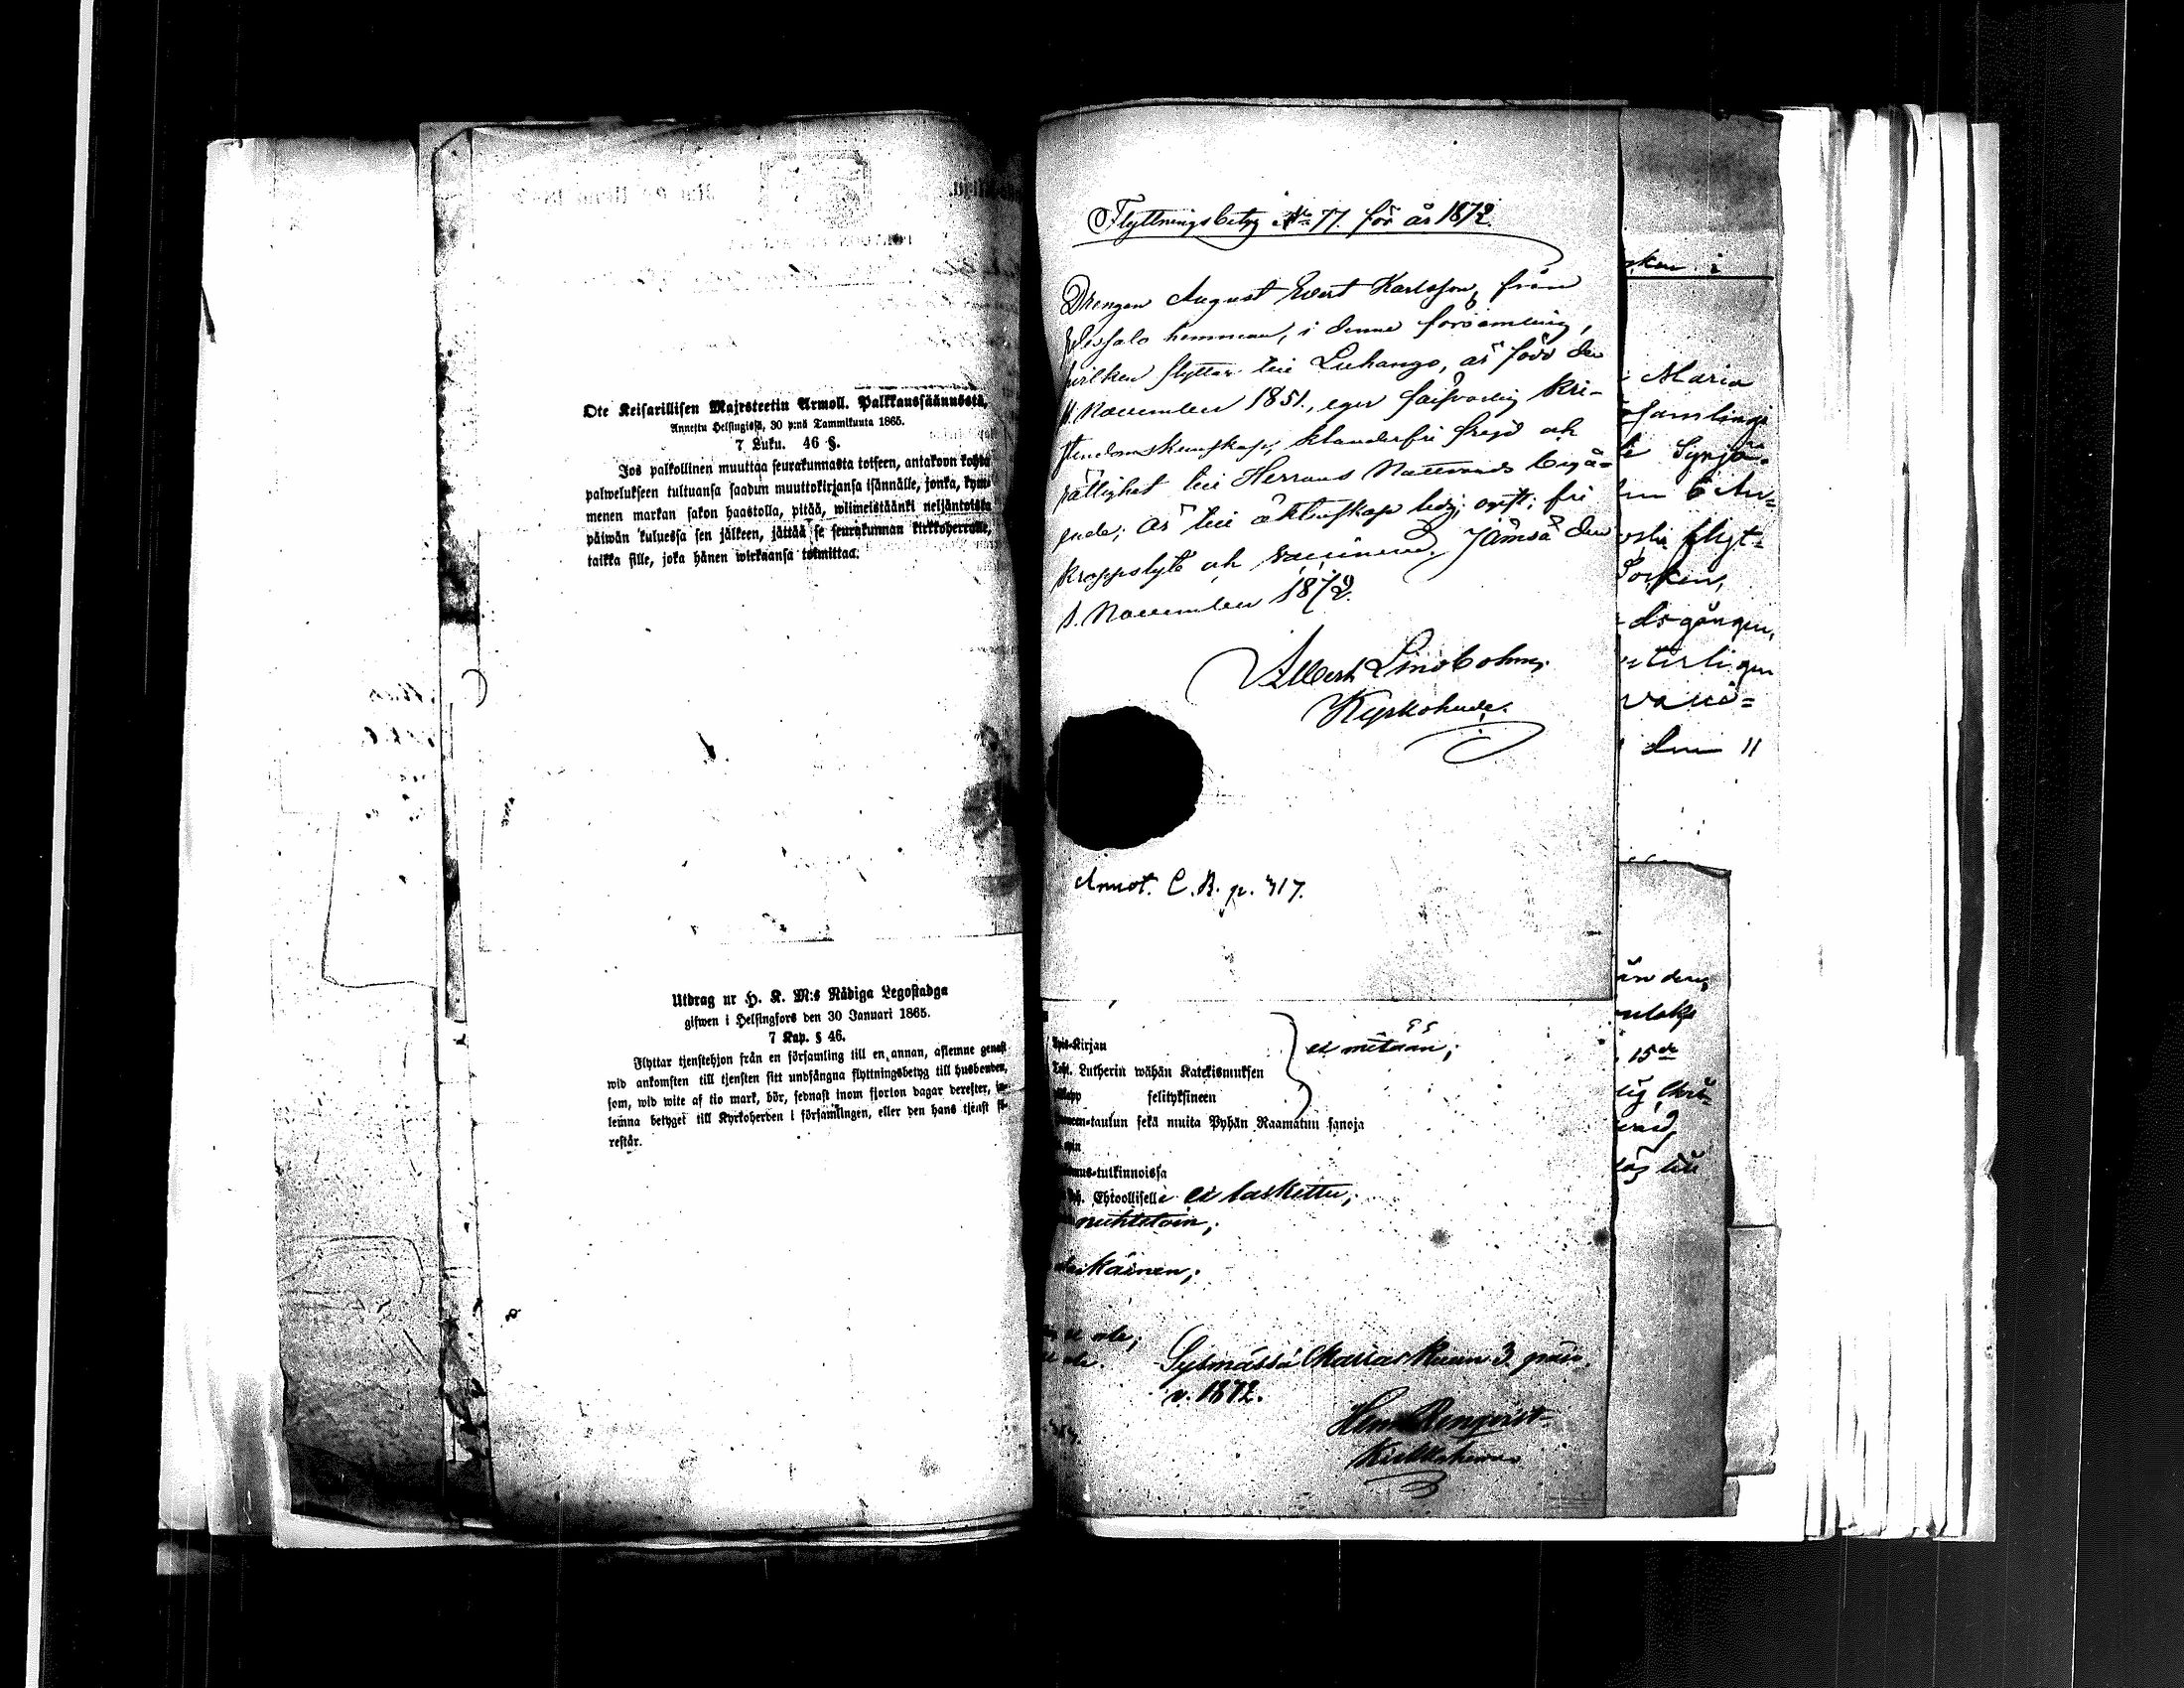 Ote Keisarillisen Majesteetin Armoll. Palkkaussäännöstä,
Annettu Helsingissä, 30 p:nä Tammikuuta 1865.
7 Luku. 46 §.
Jos palkollinen muuttaa seurakunnasta toiseen, antakoon kohta
palwelukseen tultuansa saadun muuttokirjansa isännälle, jonka, kym-
menen markan sakon haastolla, pitää, wiimeistäänki neljäntoista
päiwän kuluessa sen jälkeen, jättää se seurakunnan kirkkoherralle,
taikka sille, joka hänen wirkaansa toimittaa.
Utdrag ur H. K. M:s Nådiga Legostadga
gifwen i Helsingfors den 30 Januari 1865.
7 Kap. § 46.
Flyttar tjenstehjon från en församling till en annan, aflemne genast
wid ankomsten till tjensten sitt undfångna flyttningsbetyg till husbonden,
som, wid wite af tio mark, bör, sednast inom fjorton dagar derefter, in-
lemna betyget till Kyrkoherden i församlingen, eller den hans tjenst fö-
restår.
Flyttningsbetyg No 77. för år 1872.
Drengen August Evert Karlsson, från
hemman, i denna församling,
hvilken flyttar till Luhango, är född den
November 1851., eger försvarlig kri-
stendomskunskap, klanderfri frejd och
rättighet till Herrans Nattvards begå-
ende; är till äktenskap ledig; ogift; fri
kroppslyte och vaccinerad. Jämsä den
1. November 1872.
Albert Lindbohm,
Kyrkoherde.
Annot. C. B. p. 417.
-Kirjan
ei mitään;
Lutherin wähän Katekismuksen
selityksineen
-taulun sekä muita Pyhän Raamatun sanoja
-tutkinnoissa
Ehtoolliselle ei laskettu;
nuhteetoin;
ei ole;
ole.
Sysmässä Marraskuun 3. päiv.
v. 1872.
Henr. Renqvist
Kirkkoherra
Maria
församlings
den 11
15de